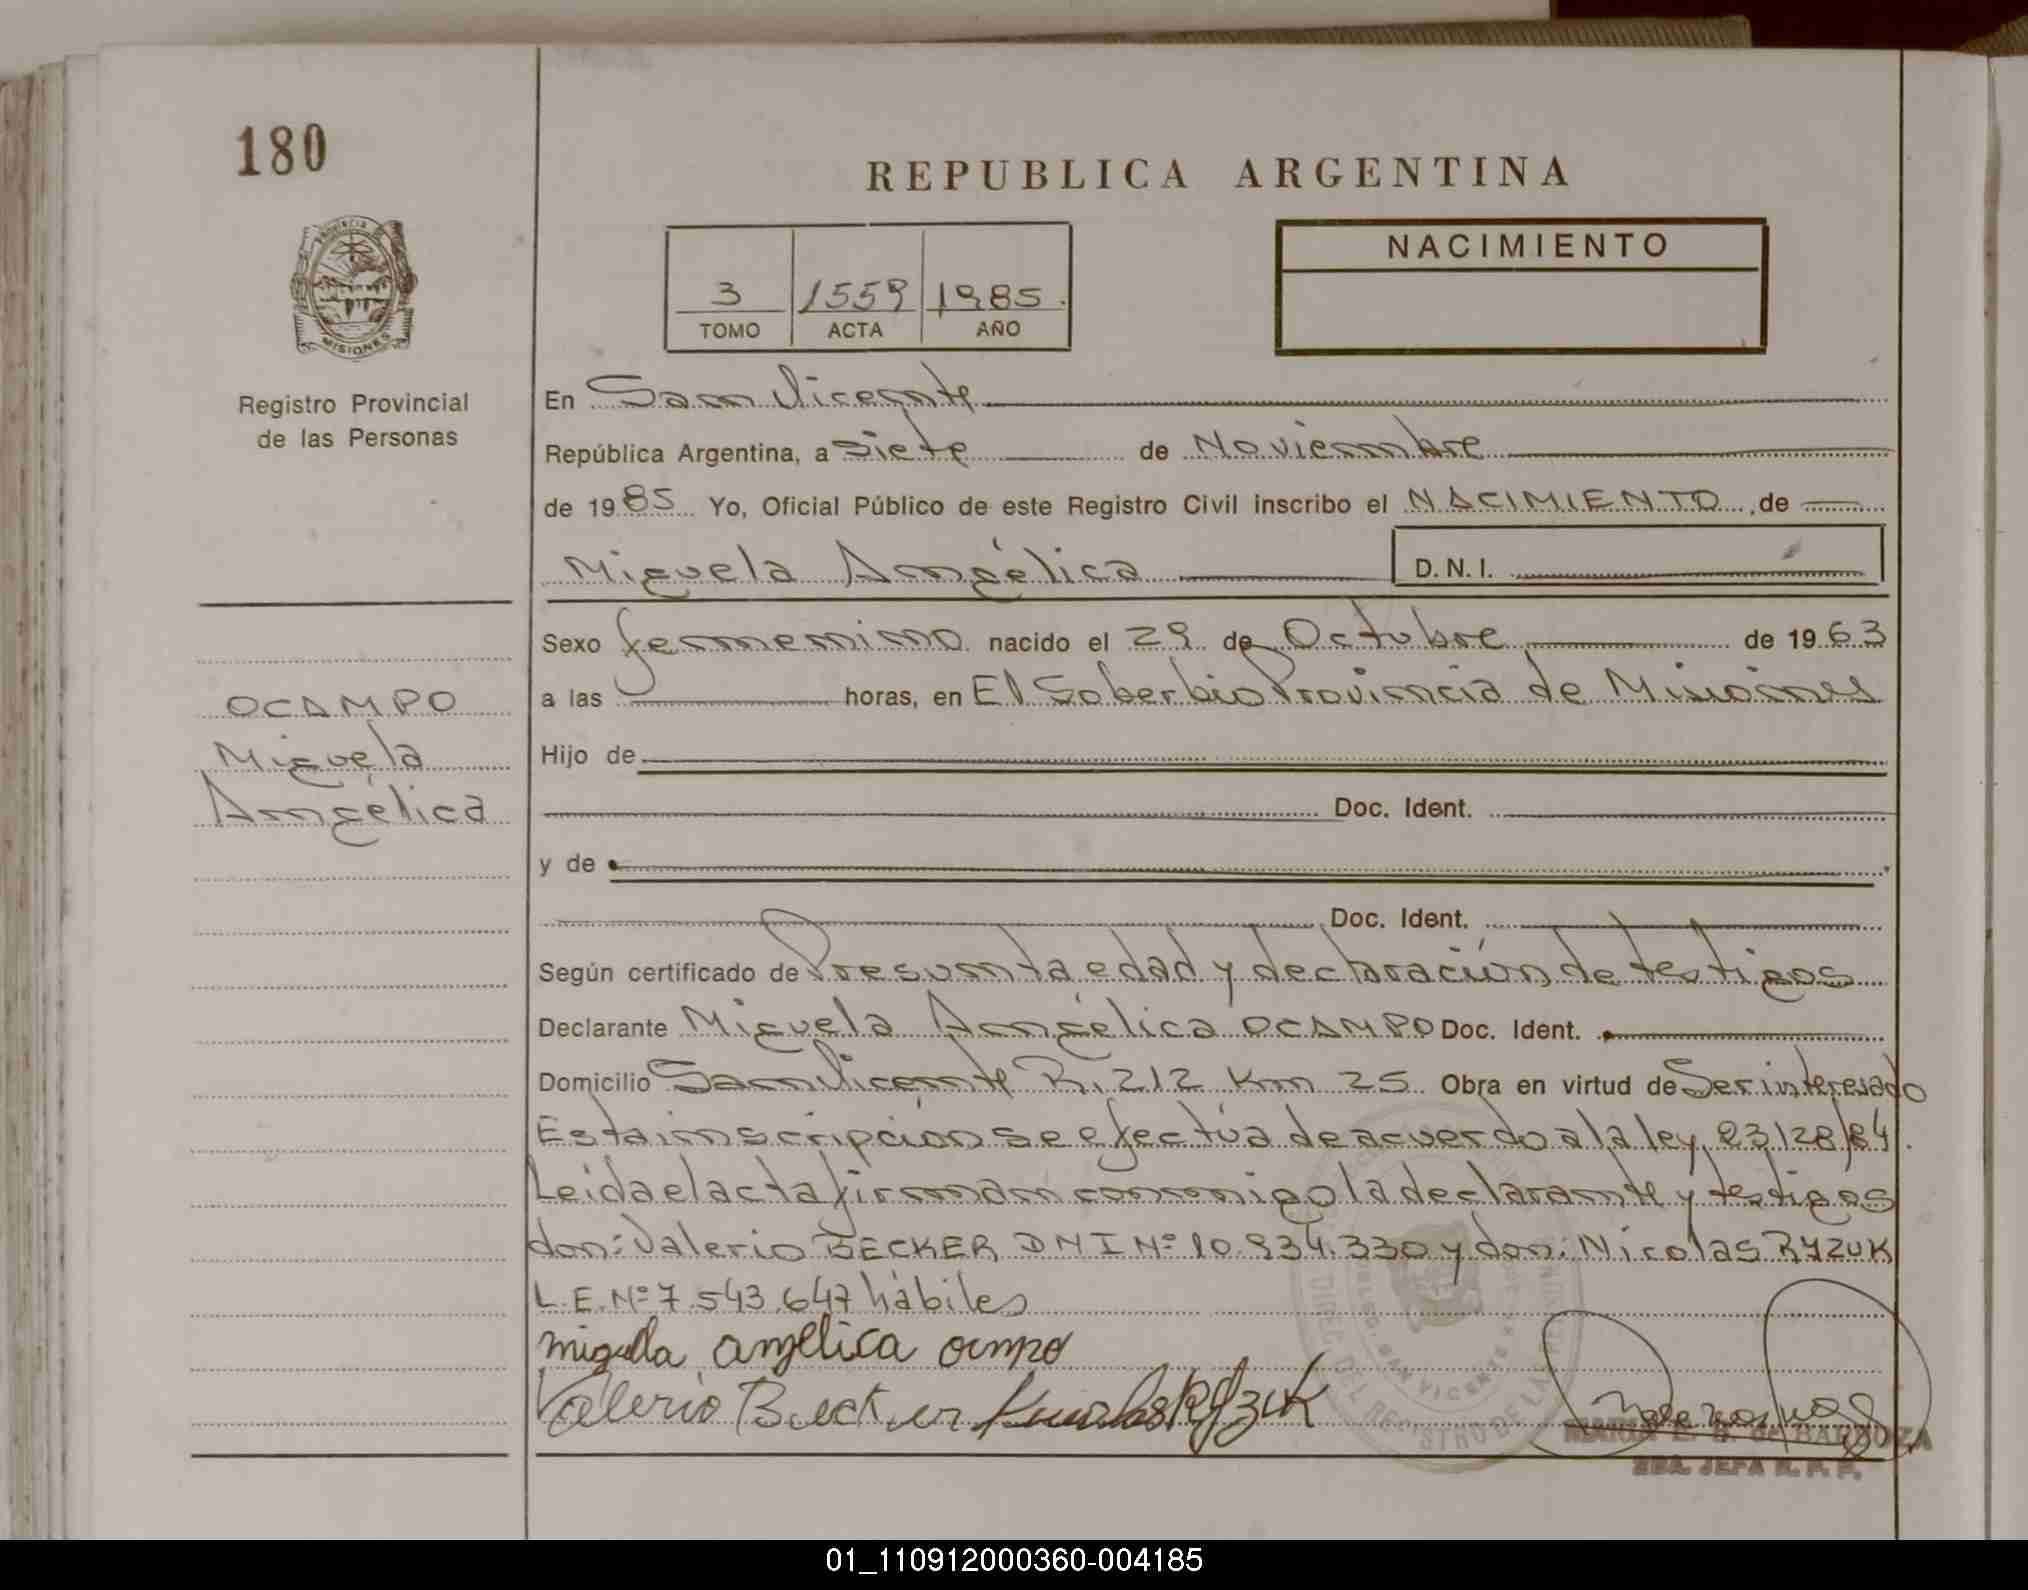 180
REPUBLICA ARGENTINA
PROVINCIA DE
MISIONES
Registro Provincial
de las Personas
3 1559 1985.
TOMO ACTA AÑO
NACIMIENTO
En San Vicente
República Argentina, a siete de Noviembre
de 1985 Yo, Oficial Público de este Registro Civil inscribo el NACIMIENTO, de
Miguela Angélica D.N.I.
Sexo femenino nacido el 29 de Octubre de 1963
a las horas, en El Soberbio Provincia de Misiones
OCAMPO
Miguela
Angélica
Hijo de
Doc. Ident.
y de
Doc. Ident.
Según certificado de Presunta edad y declaración de testigos
Declarante Miguela Angélica OCAMPO Doc. Ident.
Domicilio San Vicente R. 212 Km 25 Obra en virtud de Ser interesado
Esta inscripción se efectúa de acuerdo a la ley 23.128/84.
Leida el acta firman conmigo la declarante y testigos
don: Valerio BECKER DNI Nº 10.934.330 y don: Nicolas RYZUK
L.E. Nº 7.543.647 hábiles
miguela angelica ocmpo
Valerio Becker Ryzuk
MARIA E. B. de BARBOZA
2DA. JEFA R. P. P.
01_110912000360-004185